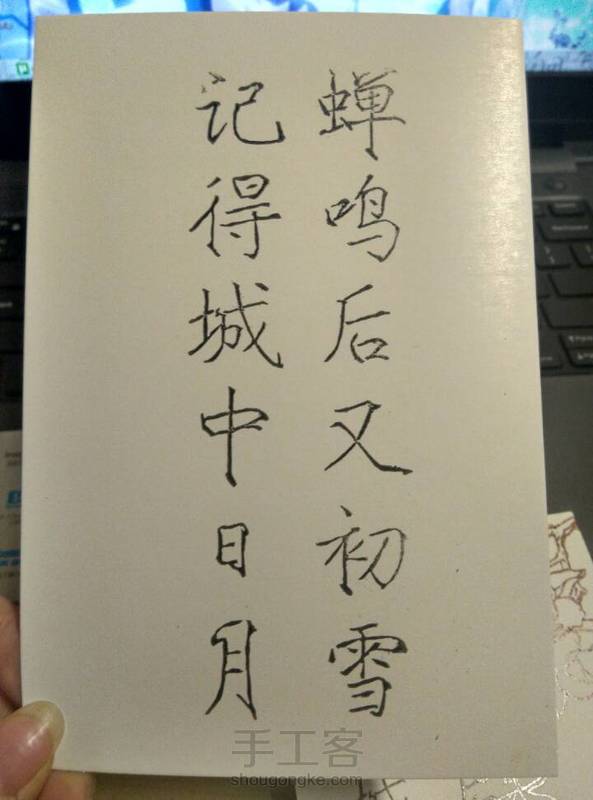 蝉鸣后又初雪
记得城中日月
手工客
shougongke.com